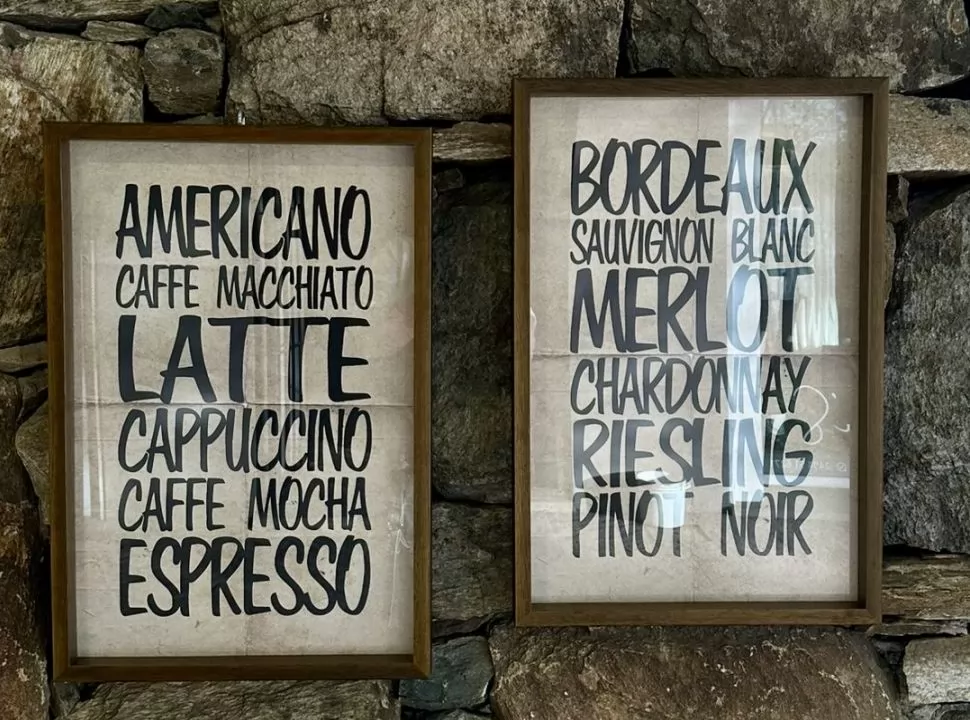 AMERICANO
CAFFE MACCHIATO
LATTE
CAPPUCCINO
CAFFE MOCHA
ESPRESSO
BORDEAUX
SAUVIGNON BLANC
MERLOT
CHARDONNAY
RIESLING
PINOT NOIR